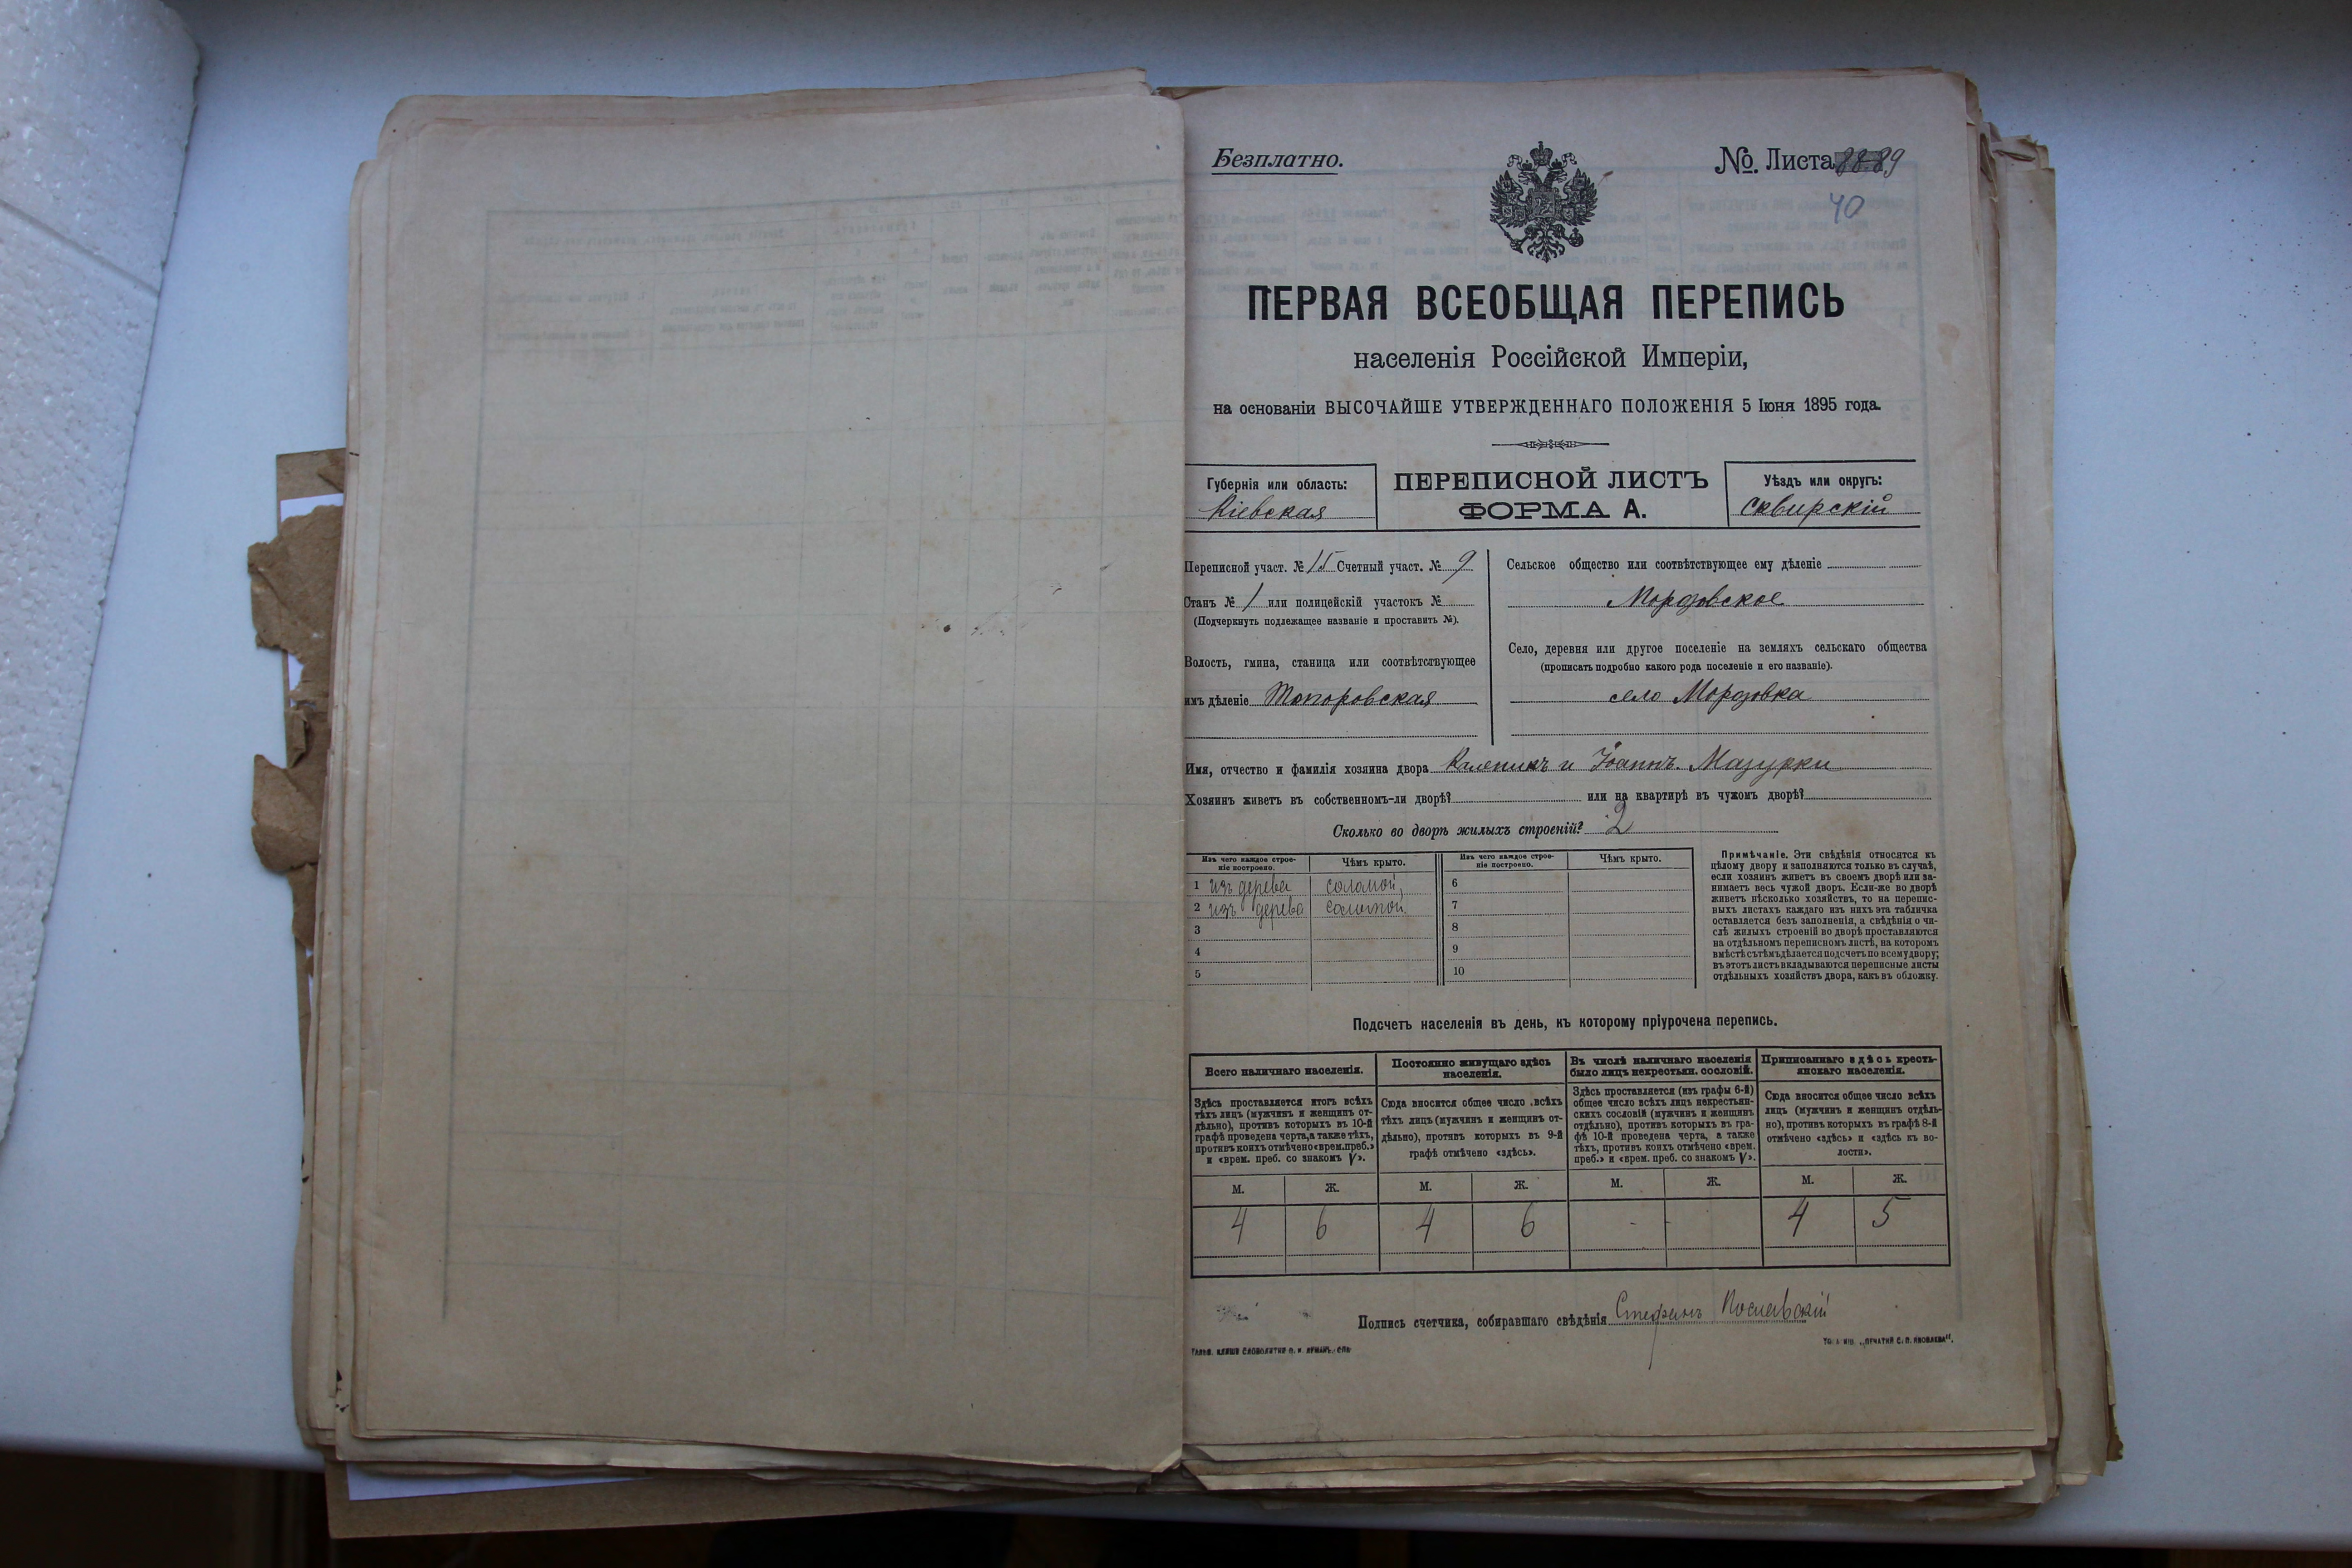 Безплатно.
№. Листа 89
40
ПЕРВАЯ ВСЕОБЩАЯ ПЕРЕПИСЬ
населенія Россійской Имперіи,
на основаніи ВЫСОЧАЙШЕ УТВЕРЖДЕННАГО ПОЛОЖЕНІЯ 5 Іюня 1895 года.
Губернія или область:
Кіевская
ПЕРЕПИСНОЙ ЛИСТЪ
ФОРМА А.
Уѣздъ или округъ:
Сквирскій
Переписной участ. № 15 Счетный участ. № 9
Станъ № 1 или полицейскій участокъ №
(Подчеркнуть подлежащее названіе и проставить №).
Волость, гмина, станица или соотвѣтствующее
имъ дѣленіе Топоровская
Сельское общество или соотвѣтствующее ему дѣленіе
Мордовское
Село, деревня или другое поселеніе на земляхъ сельскаго общества
(прописать подробно какого рода поселеніе и его названіе).
село Мордовка
Имя, отчество и фамилія хозяина двора Калепикъ и Іоаннъ Мазурки
Хозяинъ живетъ въ собственномъ-ли дворѣ? или на квартирѣ въ чужомъ дворѣ?
Сколько во дворѣ жилыхъ строеній? 2
Изъ чего каждое строе-
ніе построено.
Чѣмъ крыто.
Изъ чего каждое строе-
ніе построено.
Чѣмъ крыто.
1 изъ дерева соломой, 6
2 изъ дерева соломой. 7
3 8
4 9
5 10
Примѣчаніе. Эти свѣдѣнія относятся къ
цѣлому двору и заполняются только въ случаѣ,
если хозяинъ живетъ въ своемъ дворѣ или за-
нимаетъ весь чужой дворъ. Если-же во дворѣ
живетъ нѣсколько хозяйствъ, то на перепис-
ныхъ листахъ каждаго изъ нихъ эта табличка
оставляется безъ заполненія, а свѣдѣнія о чи-
слѣ жилыхъ строеній во дворѣ проставляются
на отдѣльномъ переписномъ листѣ, на которомъ
вмѣстѣ съ тѣмъ дѣлается подсчетъ по всему двору;
въ этотъ листъ вкладываются переписные листы
отдѣльныхъ хозяйствъ двора, какъ въ обложку.
Подсчетъ населенія въ день, къ которому пріурочена перепись.
Всего наличнаго населенія.
Здѣсь проставляется итогъ всѣхъ
тѣхъ лицъ (мужчинъ и женщинъ от-
дѣльно), противъ которыхъ въ 10-й
графѣ проведена черта, а также тѣхъ,
противъ коихъ отмѣчено «врем. преб.»
и «врем. преб. со знакомъ V».
Постоянно живущаго здѣсь
населенія.
Сюда вносится общее число всѣхъ
тѣхъ лицъ (мужчинъ и женщинъ от-
дѣльно), противъ которыхъ въ 9-й
графѣ отмѣчено «здѣсь».
Въ числѣ наличнаго населенія
было лицъ некрестьян. сословій.
Здѣсь проставляется (изъ графы 6-й)
общее число всѣхъ лицъ некрестьян-
скихъ сословій (мужчинъ и женщинъ
отдѣльно), противъ которыхъ въ гра-
фѣ 10-й проведена черта, а также
тѣхъ, противъ коихъ отмѣчено «врем.
преб.» и «врем. преб. со знакомъ V».
Приписаннаго здѣсь кресть-
янскаго населенія.
Сюда вносится общее число всѣхъ
лицъ (мужчинъ и женщинъ отдѣль-
но), противъ которыхъ въ графѣ 8-й
отмѣчено «здѣсь» и «здѣсь къ во-
лости».
М. Ж. М. Ж. М. Ж. М. Ж.
4 6 4 6 - - 4 5
Подпись счетчика, собиравшаго свѣдѣнія Стефанъ